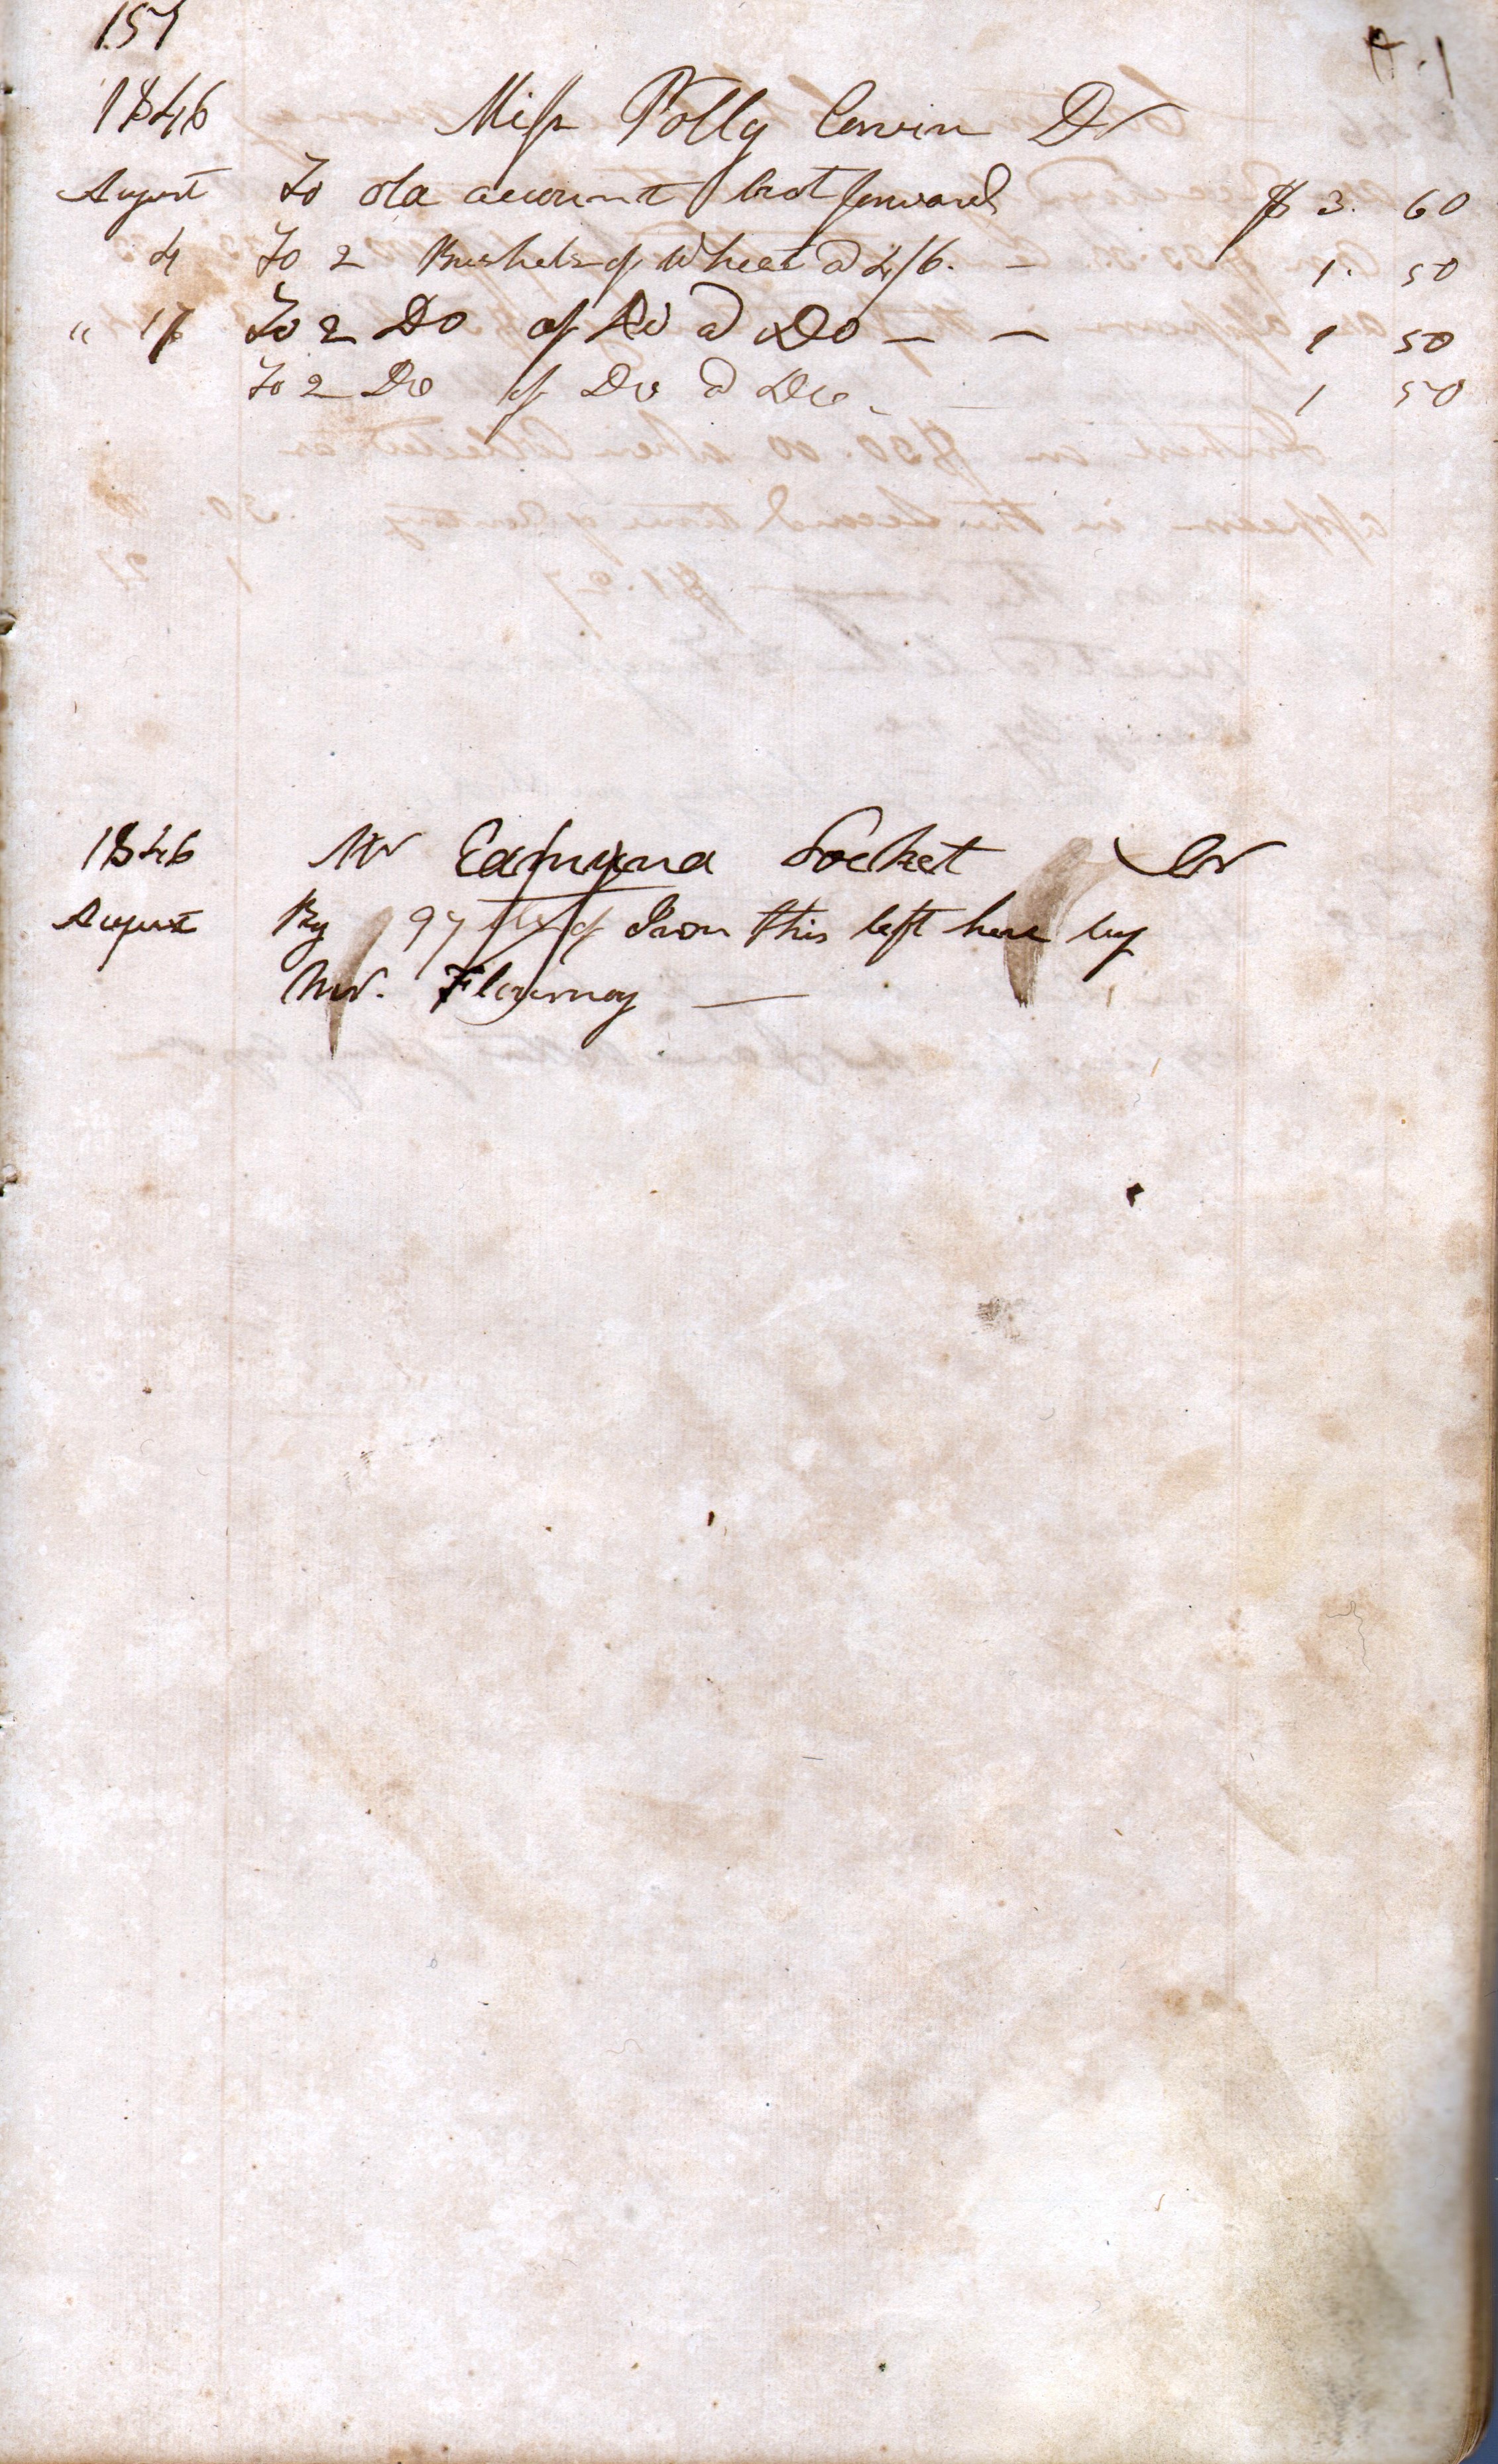 157
1846 Miss Polly Corvin Dr
August To old account brot forward $ 3. 60
4 To 2 Bushels of Wheat @ 4/6. - 1. 50
" 17 To 2 Do of Do @ Do - - 1 50
To 2 Do of Do @ Do. 1 50
1846 Mr Edmund Locket Cr
August By 97 lbs of Iron this left here by
Mr. Flournoy —